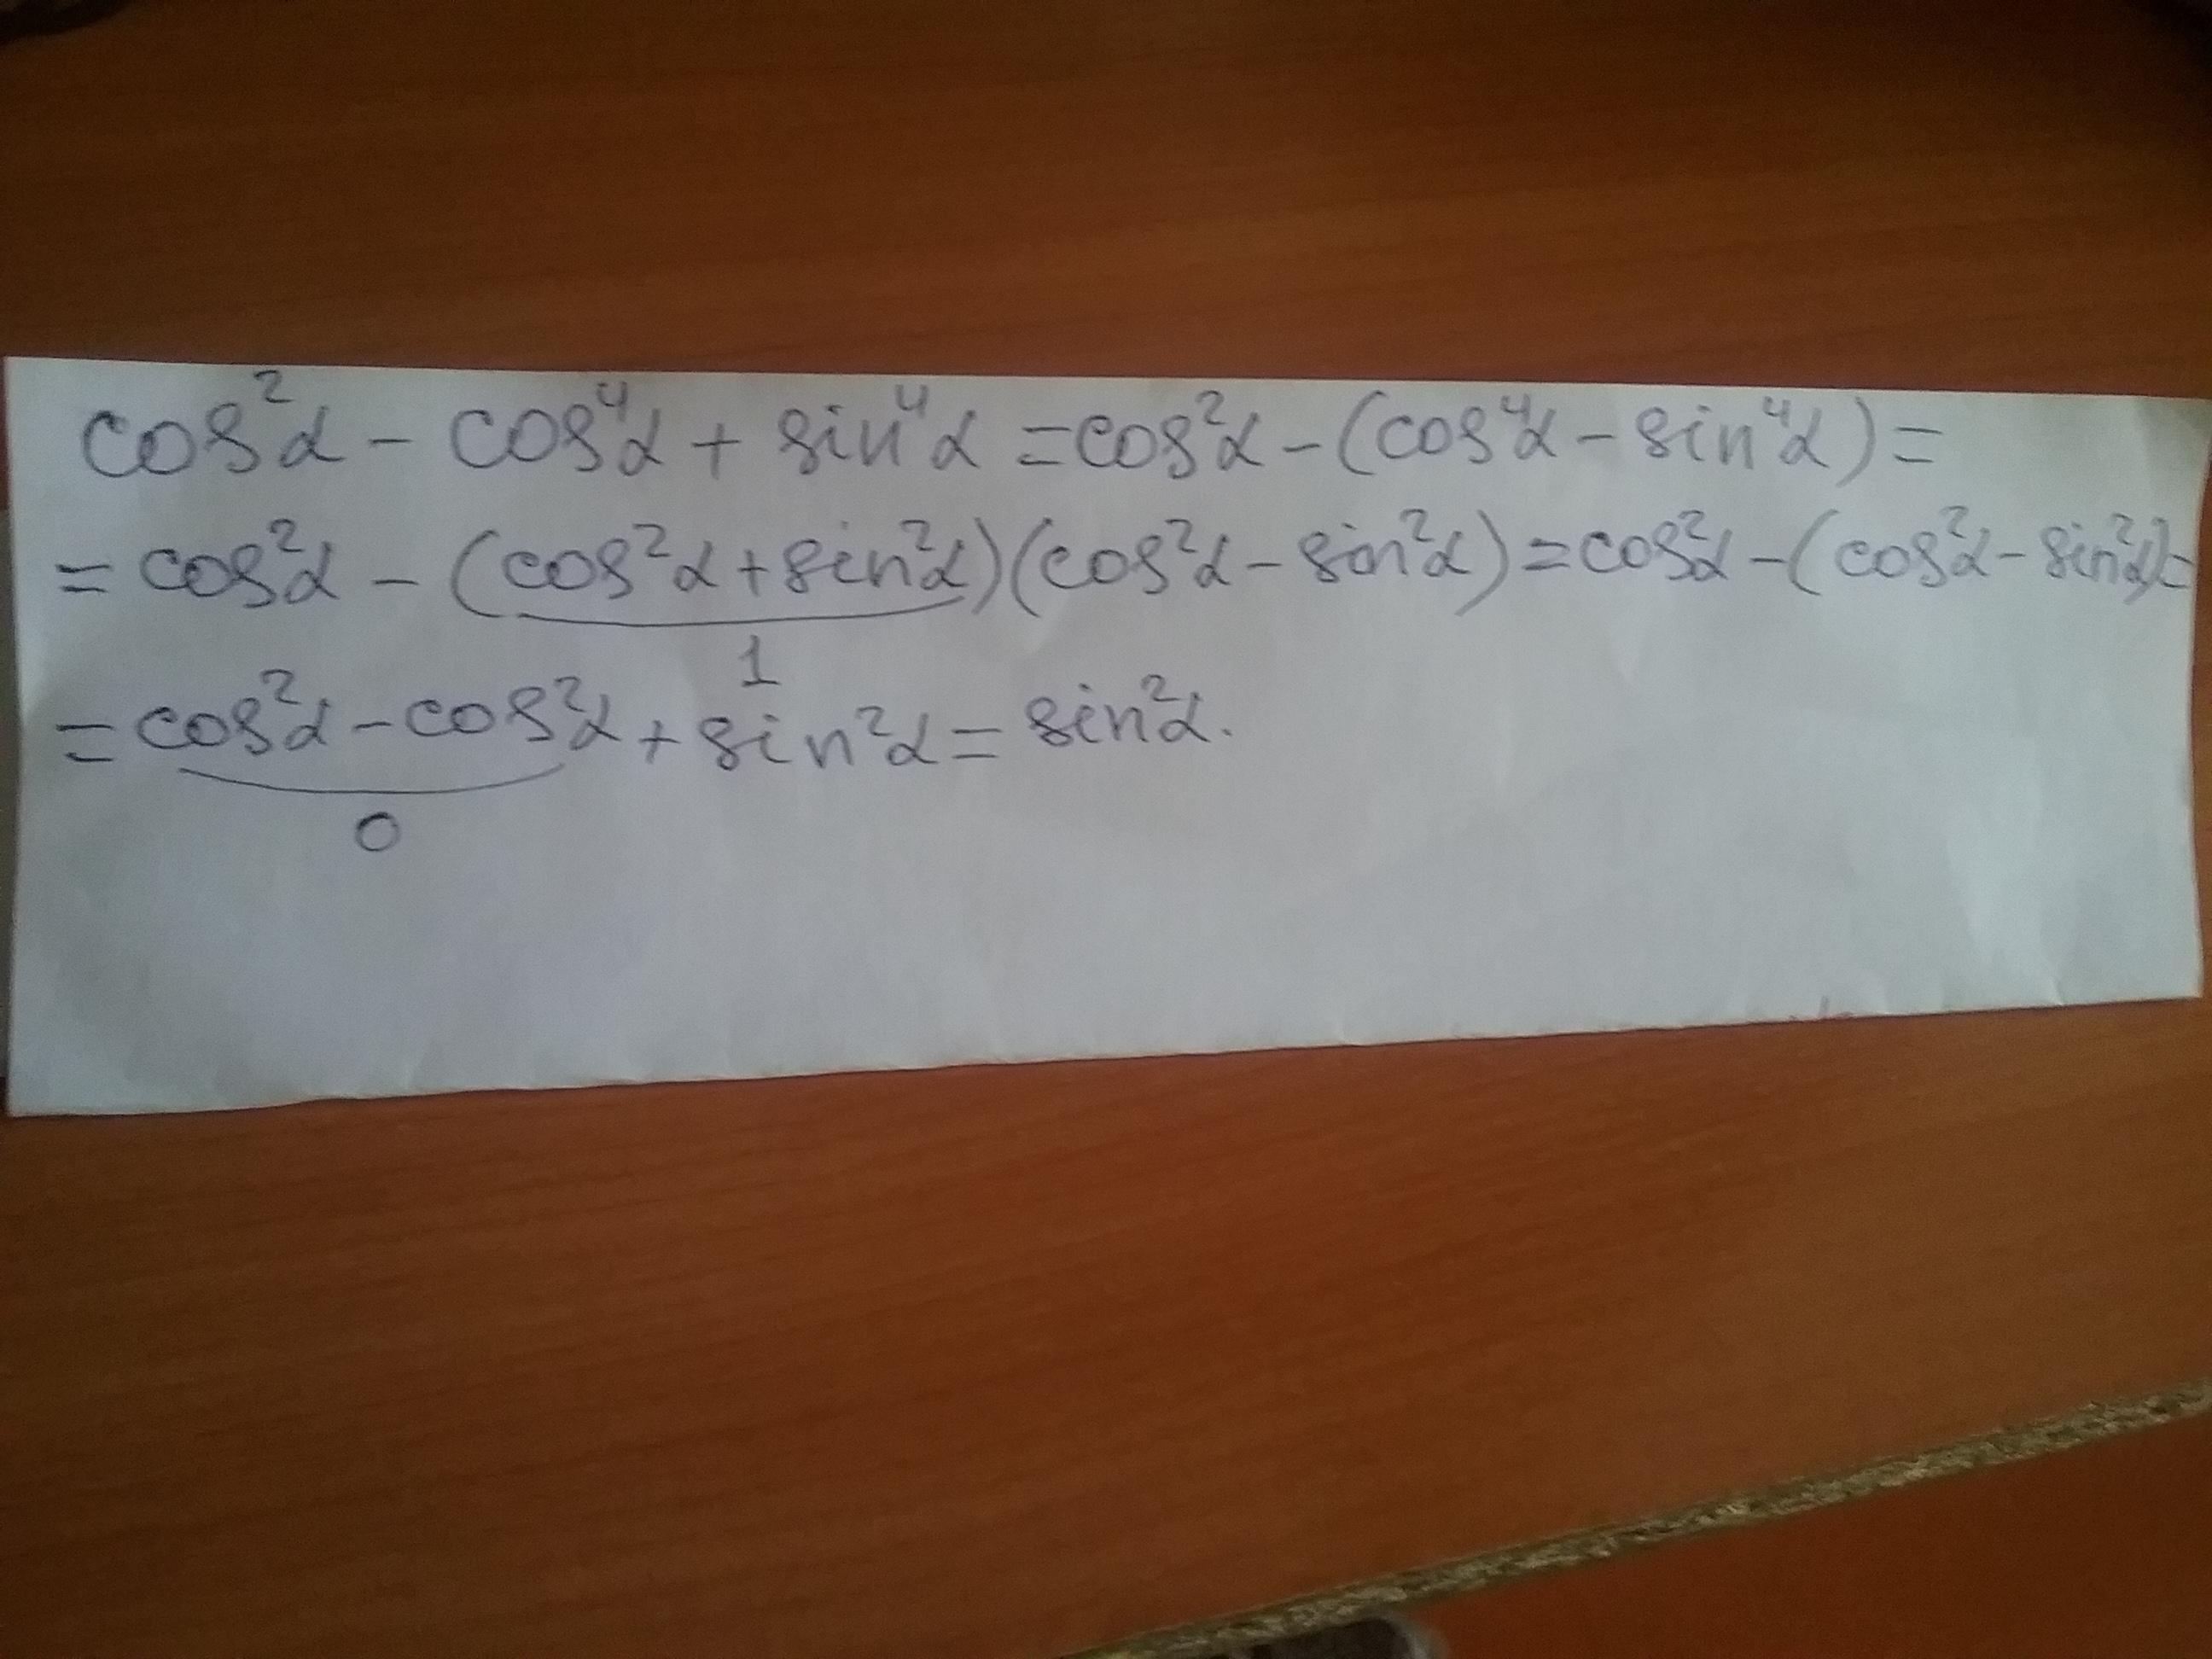 cos²α - cos⁴α + sin⁴α = cos²α - (cos⁴α - sin⁴α) =
= cos²α - (cos²α + sin²α)(cos²α - sin²α) = cos²α - (cos²α - sin²α) =
1
= cos²α - cos²α + sin²α = sin²α.
0